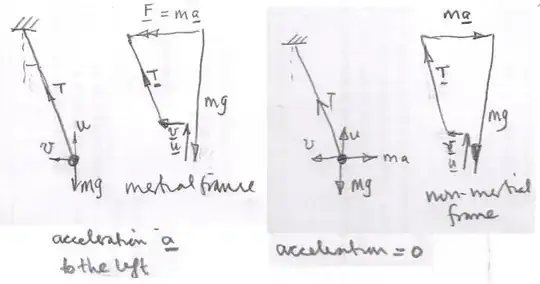 F = ma
T
T
u
v
mg
v
u
mg
inertial frame
acceleration a
to the left
ma
T
T
u
v
ma
mg
v
u
mg
non-inertial
frame
acceleration = 0